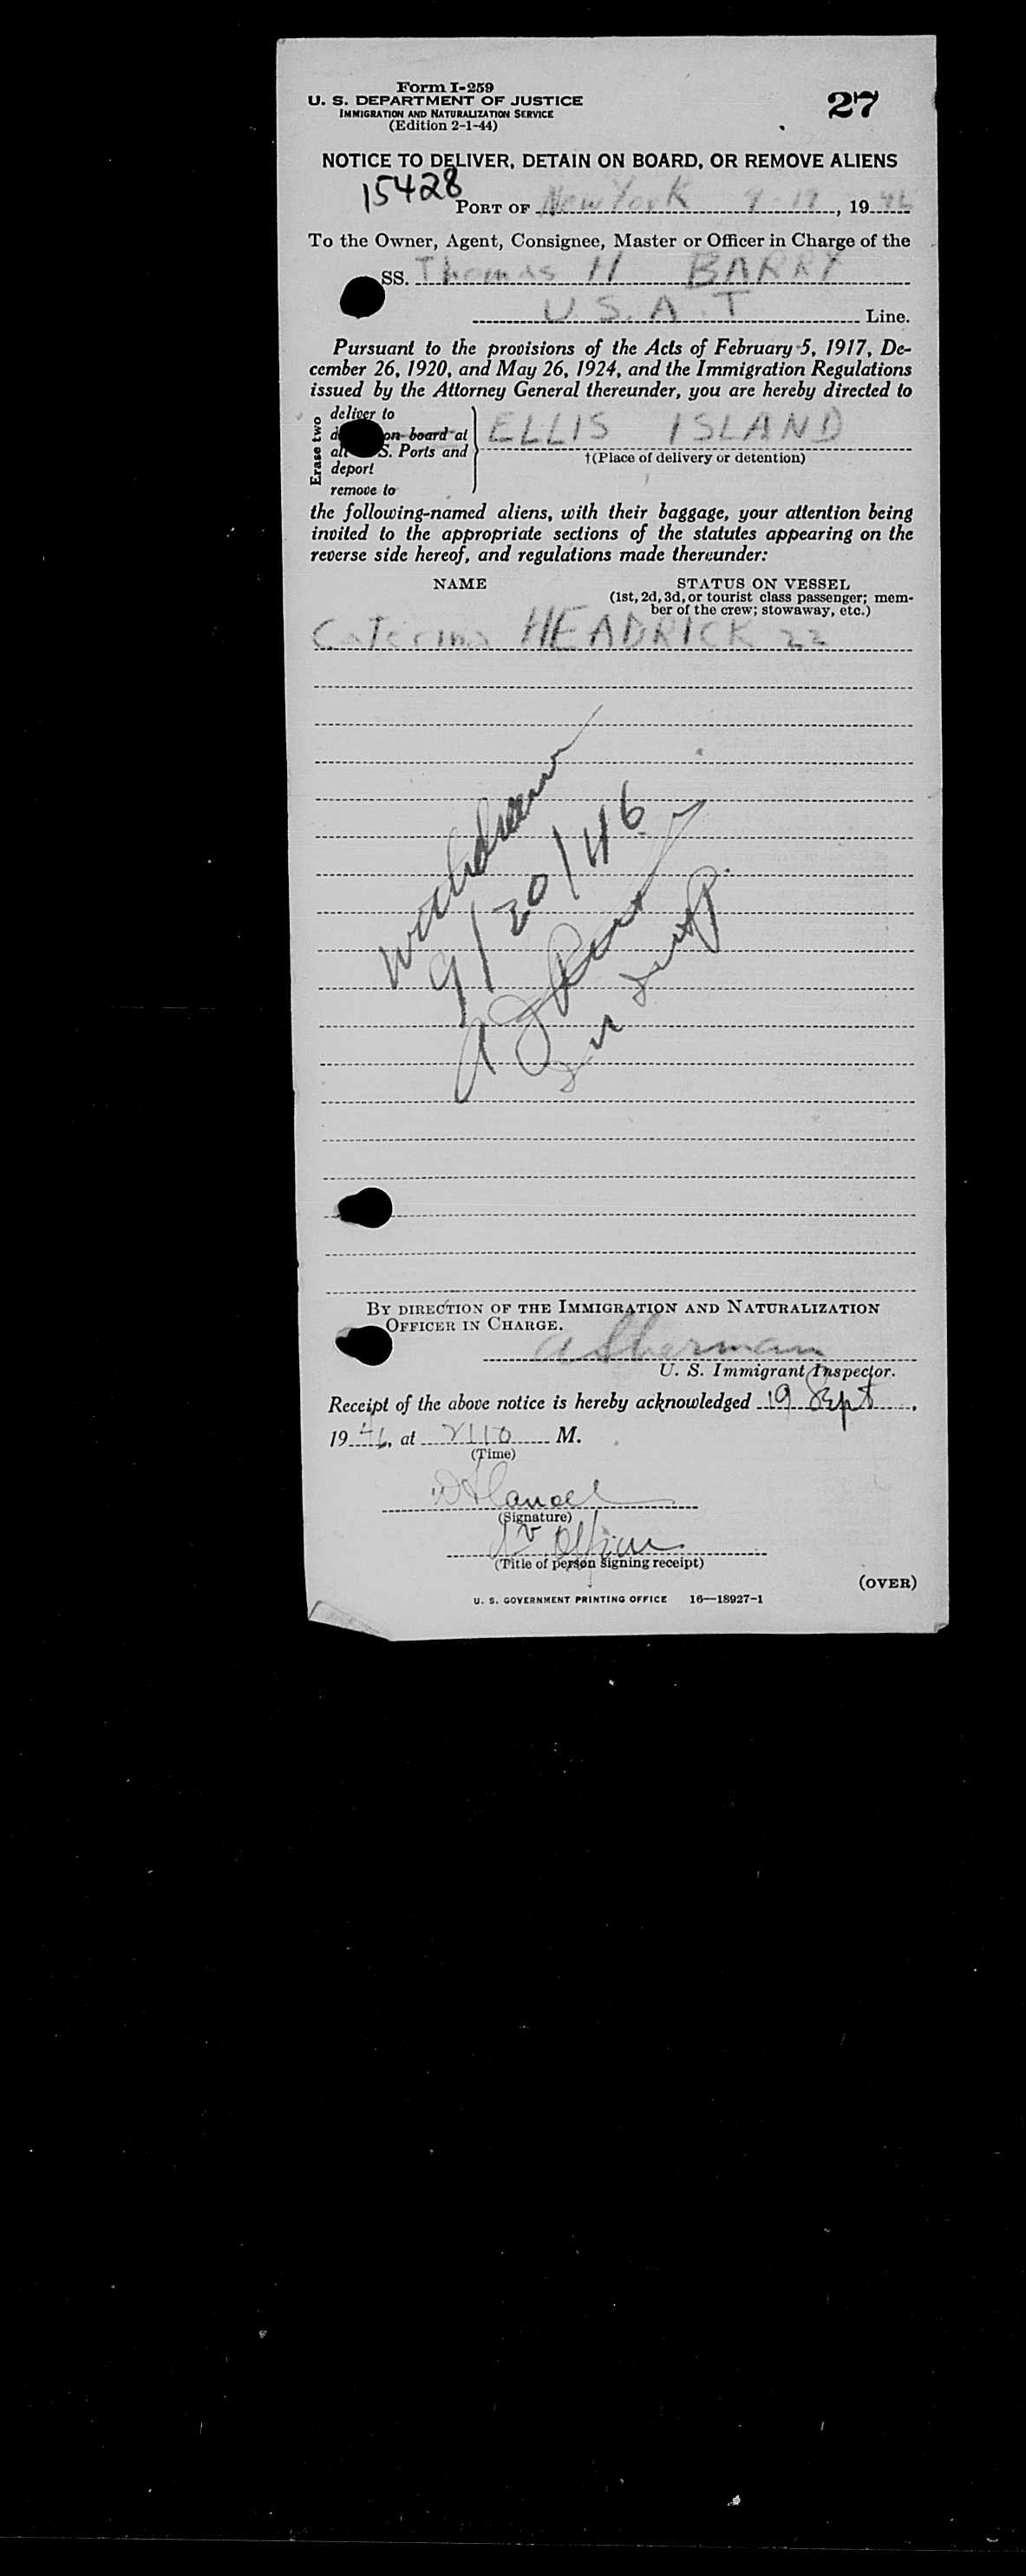 Form I-259
U. S. DEPARTMENT OF JUSTICE
IMMIGRATION AND NATURALIZATION SERVICE
(Edition 2-1-44)
27
NOTICE TO DELIVER, DETAIN ON BOARD, OR REMOVE ALIENS
15428
PORT OF New York 9-19, 1946
To the Owner, Agent, Consignee, Master or Officer in Charge of the
SS. Thomas H BARRY
U.S.A.T Line.
Pursuant to the provisions of the Acts of February 5, 1917, De-
cember 26, 1920, and May 26, 1924, and the Immigration Regulations
issued by the Attorney General thereunder, you are hereby directed to
Erase two
deliver to
on board at
S. Ports and
deport
remove to
ELLIS ISLAND
†(Place of delivery or detention)
the following-named aliens, with their baggage, your attention being
invited to the appropriate sections of the statutes appearing on the
reverse side hereof, and regulations made thereunder:
NAME
STATUS ON VESSEL
(1st, 2d, 3d, or tourist class passenger; mem-
ber of the crew; stowaway, etc.)
Caterina HEADRICK 22
withdrawn
9/20/46
BY DIRECTION OF THE IMMIGRATION AND NATURALIZATION
OFFICER IN CHARGE.
a Sherman
U. S. Immigrant Inspector.
Receipt of the above notice is hereby acknowledged 19 Sept,
1946, at M.
(Time)
(Signature)
Officer
(Title of person signing receipt)
(OVER)
U. S. GOVERNMENT PRINTING OFFICE 16—18927-1